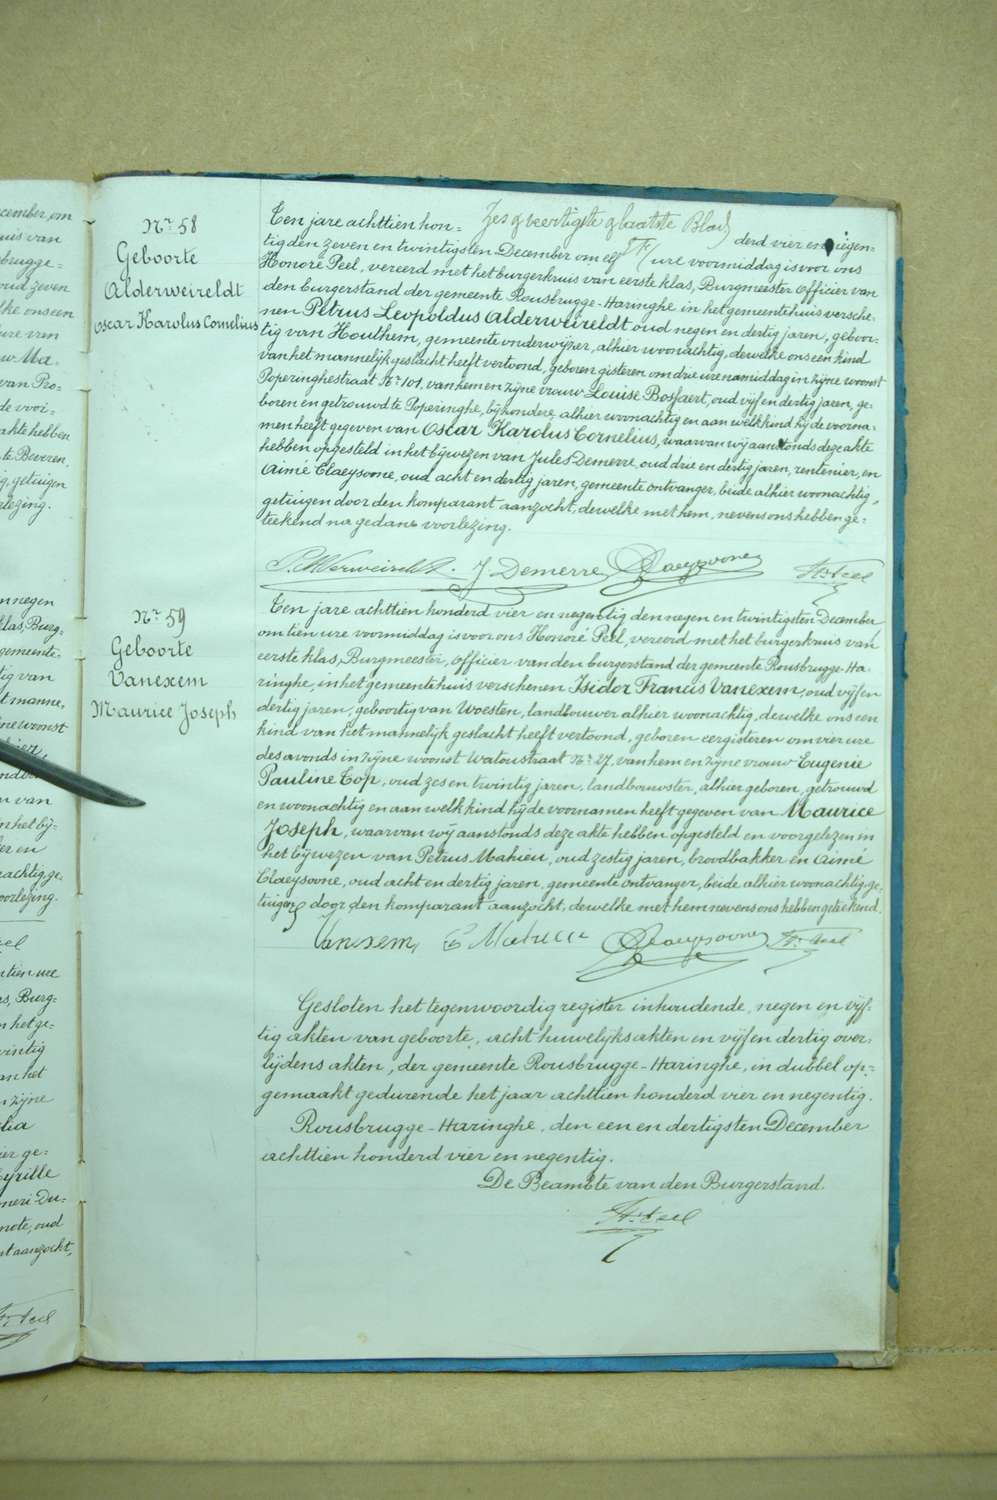 Nr 58
Geboorte
Alderweireldt
Oscar Karolus Cornelius
Ten jare achttien hon= Zes & veertigste & laatste Blad derd vier en negen=
tig den zeven en twintigsten December om elf ure voormiddag is voor ons
Honoré Peel, vereerd met het burgerkruis van eerste klas, Burgmeester Officier van
den burgerstand der gemeente Rousbrugge-Haringhe in het gemeentehuis versche=
nen Petrus Leopoldus Alderweireldt oud negen en dertig jaren, geboor=
tig van Houthem, gemeente onderwijzer, alhier woonachtig, dewelke ons een kind
van het mannelijk geslacht heeft vertoond, geboren gisteren om drie ure namiddag in zijne woonst
Poperinghestraat Nr 101, van hem en zijne vrouw Louise Bossaert, oud vijf en dertig jaren, ge=
boren en getrouwd te Poperinghe, bijzondere, alhier woonachtig en aan welk kind hij de voorna=
men heeft gegeven van Oscar Karolus Cornelius, waarvan wij aanstonds deze akte
hebben opgesteld in het bijwezen van Jules Demerre, oud drie en dertig jaren, rentenier, en
Aimé Claeysoone, oud acht en dertig jaren, gemeente ontvanger, beide alhier woonachtig,
getuigen door den komparant aanzocht, dewelke met hem, nevens ons hebben ge=
teekend na gedane voorlezing.
P. Alderweireldt. J Demerre Claeysoone H. Peel
Nr 59
Geboorte
Vanexem
Maurice Joseph
Ten jare achttien honderd vier en negentig den negen en twintigsten December
om tien ure voormiddag is voor ons Honoré Peel, vereerd met het burgerkruis van
eerste klas, Burgmeester, Officier van den burgerstand der gemeente Rousbrugge-Ha=
ringhe, in het gemeentehuis verschenen Isidor Francis Vanexem, oud vijf en
dertig jaren, geboortig van Woesten, landbouwer alhier woonachtig, dewelke ons een
kind van het mannelijk geslacht heeft vertoond, geboren eergisteren om vier ure
des avonds in zijne woonst Watoustraat Nr 27, van hem en zijne vrouw Eugenie
Pauline Top, oud zes en twintig jaren, landbouwster, alhier geboren, getrouwd
en woonachtig en aan welk kind hij de voornamen heeft gegeven van Maurice
Joseph, waarvan wij aanstonds deze akte hebben opgesteld en voorgelezen in
het bijwezen van Petrus Mahieu, oud zestig jaren, broodbakker en Aimé
Claeysoone, oud acht en dertig jaren, gemeente ontvanger, beide alhier woonachtig, ge=
tuigen door den komparant aanzocht, dewelke met hem nevens ons hebben geteekend.
Vanexem P Mahieu Claeysoone H. Peel
Gesloten het tegenwoordig register inhoudende, negen en vijf=
tig akten van geboorte, acht huwelijks akten en vijf en dertig over=
lijdens akten, der gemeente Rousbrugge-Haringhe, in dubbel op=
gemaakt gedurende het jaar achttien honderd vier en negentig.
Rousbrugge-Haringhe, den een en dertigsten December
achttien honderd vier en negentig.
De Beambte van den Burgerstand
H. Peel